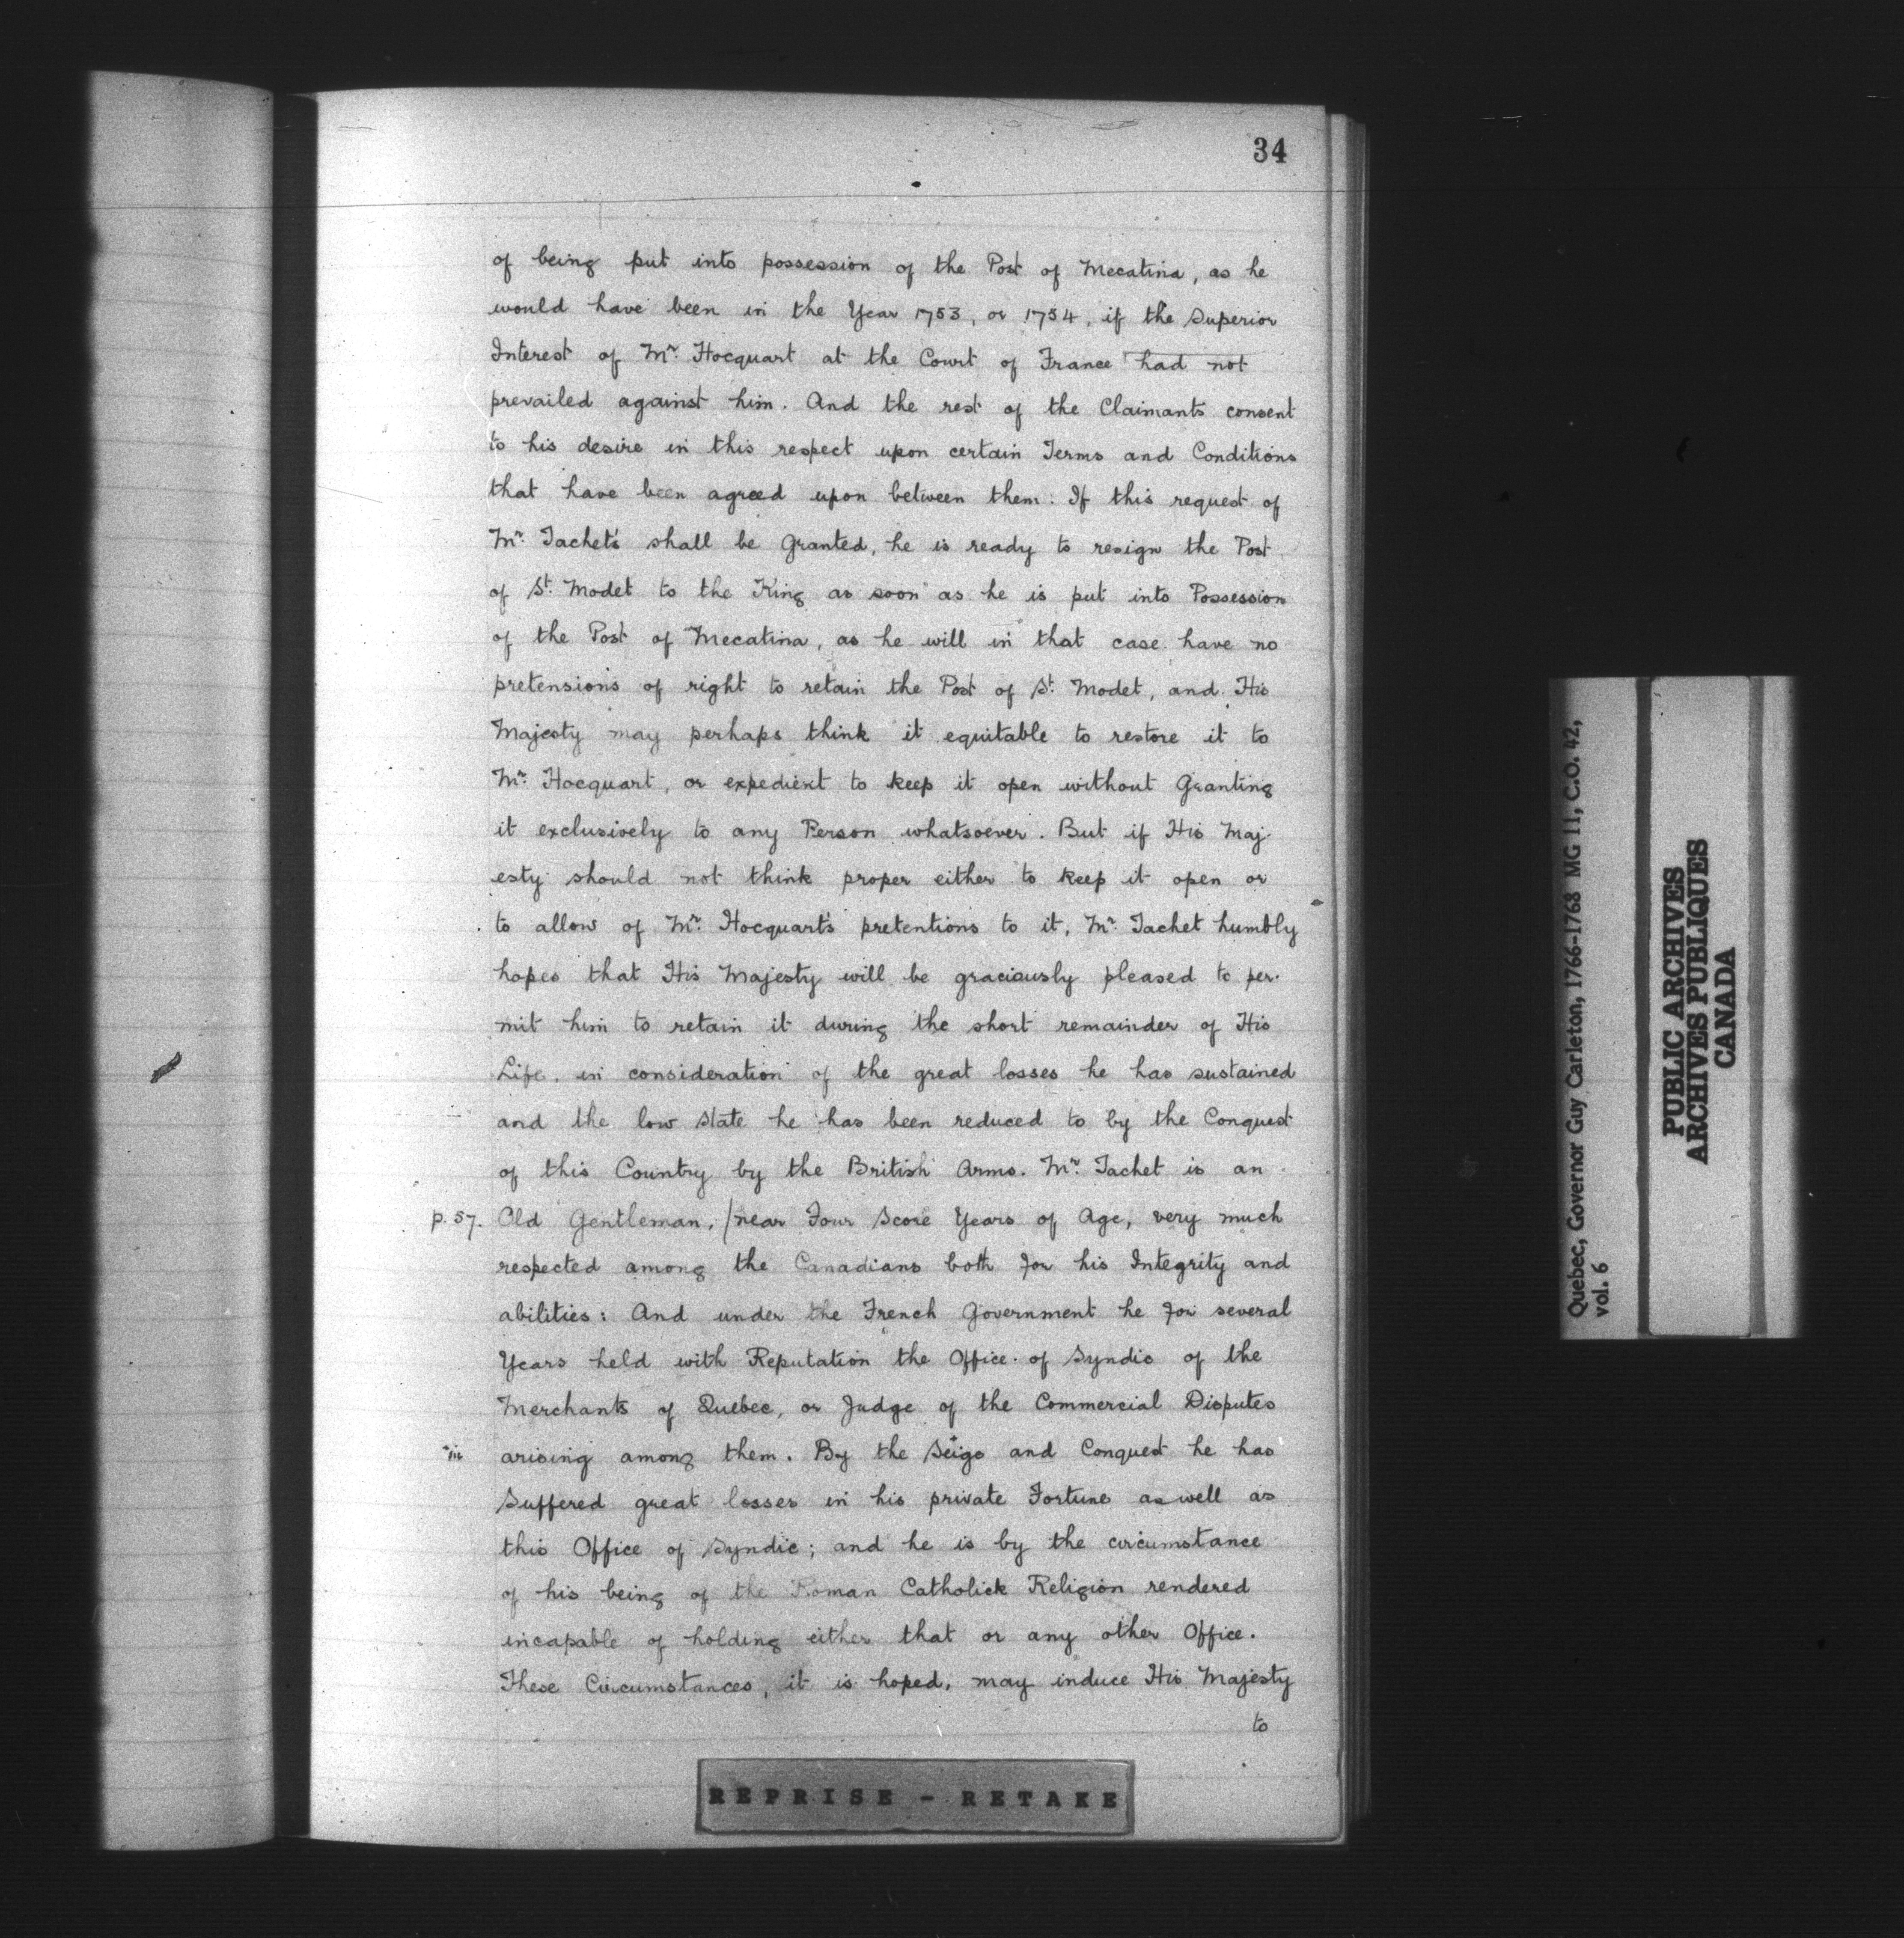 34
of being put into possession of the Post of Mecatina, as he
would have been in the Year 1753, or 1754, if the Superior
Interest of Mr. Hocquart at the Court of France had not
prevailed against him. And the rest of the Claimants consent
to his desire in this respect upon certain Terms and Conditions
that have been agreed upon between them. If this request of
Mr. Tachet's shall be Granted, he is ready to resign the Post
of St. Modet to the King as soon as he is put into Possession
of the Post of Mecatina, as he will in that case have no
pretensions of right to retain the Post of St. Modet, and His
Majesty may perhaps think it equitable to restore it to
Mr. Hocquart, or expedient to keep it open without Granting
it exclusively to any Person whatsoever. But if His Maj-
esty should not think proper either to keep it open or
to allow of Mr. Hocquart's pretentions to it, Mr. Tachet humbly
hopes that His Majesty will be graciously pleased to per-
mit him to retain it during the short remainder of His
Life, in consideration of the great losses he has sustained
and the low state he has been reduced to by the Conquest
of this Country by the British Arms. Mr. Tachet is an
p. 57. Old Gentleman, /near Four Score Years of Age, very much
respected among the Canadians both for his Integrity and
abilities: And under the French Government he for several
Years held with Reputation the Office of Syndic of the
Merchants of Quebec, or Judge of the Commercial Disputes
*sic arising among them. By the Seige* and Conquest he has
Suffered great losses in his private Fortune as well as
this Office of Syndic; and he is by the circumstance
of his being of the Roman Catholick Religion rendered
incapable of holding either that or any other Office.
These Circumstances, it is hoped, may induce His Majesty
to
REPRISE - RETAKE
Quebec, Governor Guy Carleton, 1766-1768 MG 11, C.O. 42,
vol. 6
PUBLIC ARCHIVES
ARCHIVES PUBLIQUES
CANADA